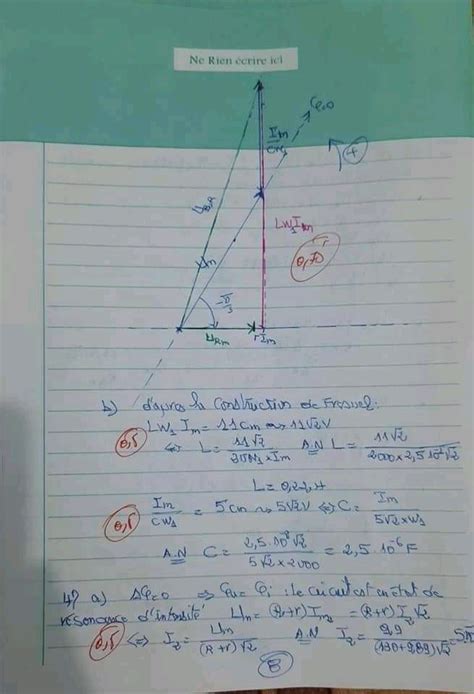 Ne Rien écrire ici
φ=0
Im/Cω₁
+
Lω₁Im
Um
-π/3
URm
rIm
b) d'après la construction de Fresnel :
Lω₁ Im = 11cm ⟶ 11√2V
0,5
⇔ L = 11√2 / Im A.N L = 11√2 / 2000 × 2,5 10⁻²√2
L = 0,22 H
0,5
Im/Cω₁ = 5cm ⟶ 5√2V ⇔ C = Im / 5√2 × ω₁
A.N C = 2,5 . 10⁻²√2 / 5√2 × 2000 = 2,5 . 10⁻⁶F
4) a) Δφ=0 ⇒ φu = φi : le circuit est en état de
résonance d'intensité Um = (R+r)Im₂ = (R+r)I₂√2
0,5
⇔ I₂ = Um / (R+r)√2 A.N I₂ =